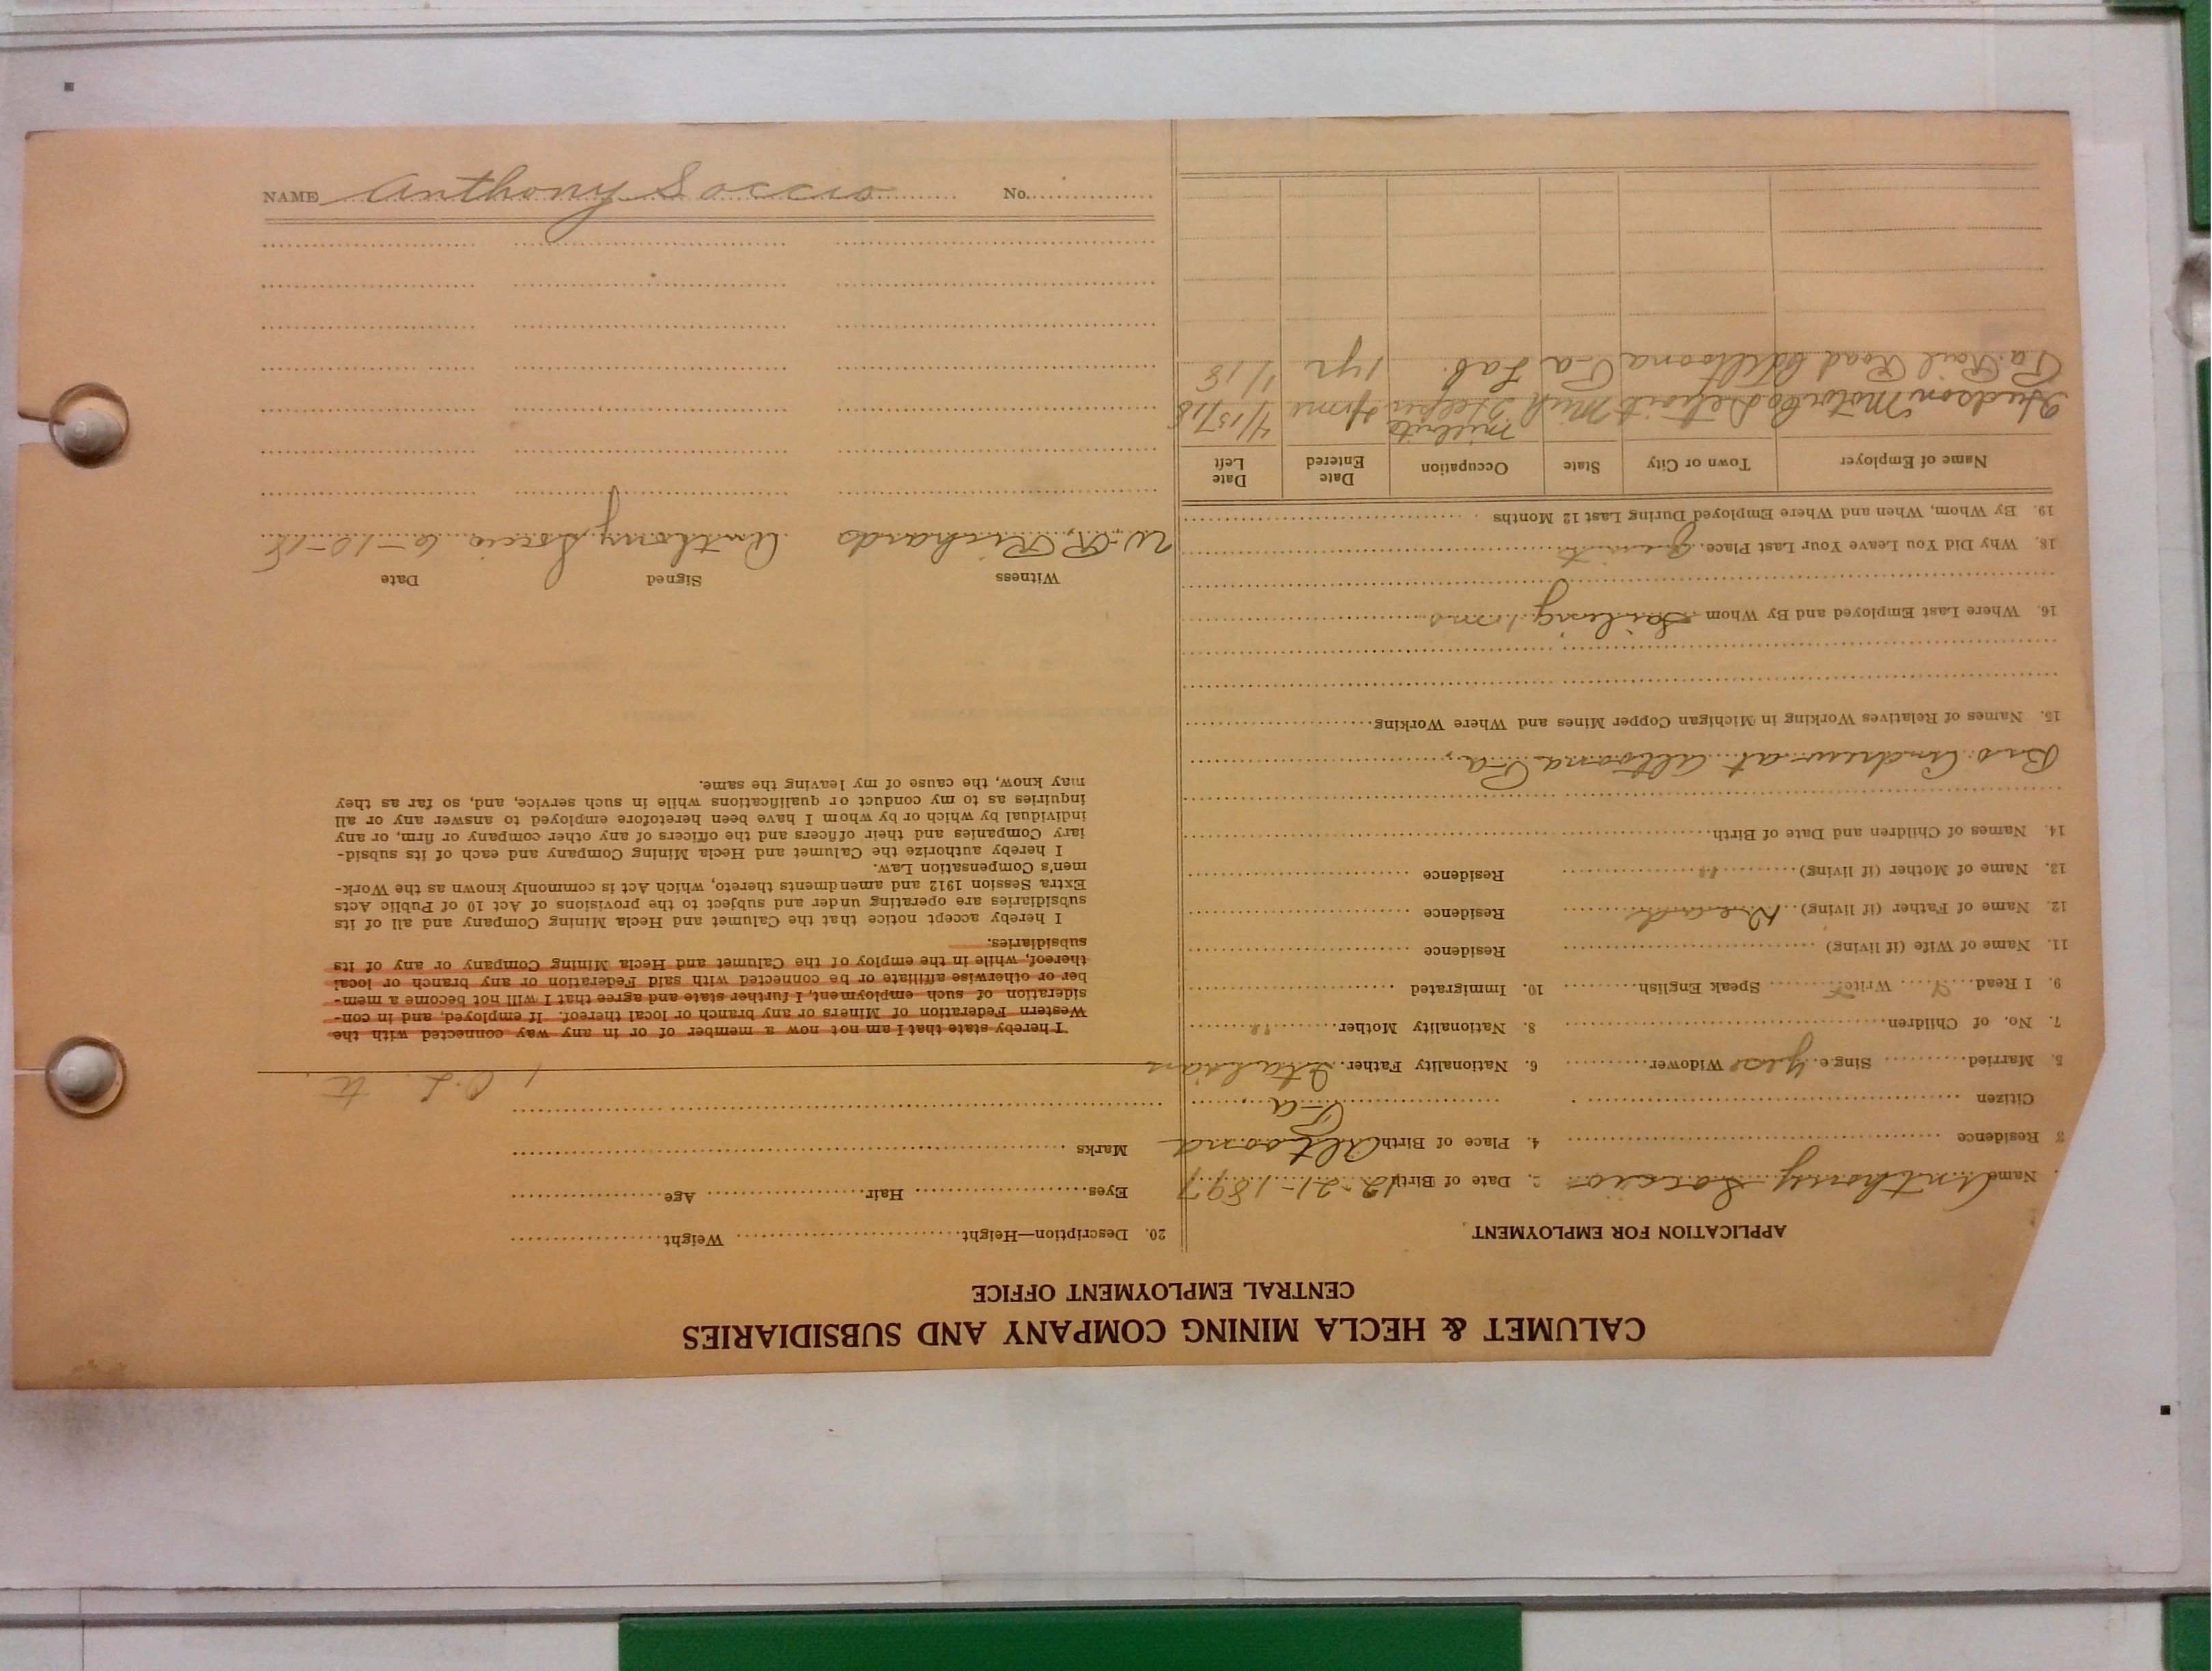 CALUMET & HECLA MINING COMPANY AND SUBSIDIARIES
CENTRAL EMPLOYMENT OFFICE
APPLICATION FOR EMPLOYMENT
Name Anthony Soccio 2. Date of Birth 12-21-1897
3 Residence 4. Place of Birth Altoona
Citizen Pa
5. Married Single yes Widower 6. Nationality Father. Italian
7. No. of Children 8. Nationality Mother "
9. I Read Y Write Y Speak English 10. Immigrated
11. Name of Wife (if living) Residence
12. Name of Father (if living) Dead Residence
13. Name of Mother (if living) " Residence
14. Names of Children and Date of Birth
Bro. Andrew at Altoona Pa
15. Names of Relatives Working in Michigan Copper Mines and Where Working
16. Where Last Employed and By Whom Sailing 1 mo
18. Why Did You Leave Your Last Place. Quit
19. By Whom, When and Where Employed During Last 12 Months
Name of Employer Town or City State Occupation Date Entered Date Left
Hudson Motor Co Detroit Mich Millwrite Helper 4 mo 4/15/18
Pa. Rail Road Altoona Pa Lab. 1 yr 1/18
20. Description—Height Weight
Eyes Hair Age
Marks
I hereby state that I am not now a member of or in any way connected with the
Western Federation of Miners or any branch or local thereof. If employed, and in con-
sideration of such employment, I further state and agree that I will not become a mem-
ber or otherwise affiliate or be connected with said Federation or any branch or local
thereof, while in the employ of the Calumet and Hecla Mining Company or any of its
subsidiaries.
I hereby accept notice that the Calumet and Hecla Mining Company and all of its
subsidiaries are operating under and subject to the provisions of Act 10 of Public Acts
Extra Session 1912 and amendments thereto, which Act is commonly known as the Work-
men's Compensation Law.
I hereby authorize the Calumet and Hecla Mining Company and each of its subsid-
iary Companies and their officers and the officers of any other company or firm, or any
individual by which or by whom I have been heretofore employed to answer any or all
inquiries as to my conduct or qualifications while in such service, and, so far as they
may know, the cause of my leaving the same.
Witness Signed Date
W. R. Richards Anthony Soccio 6-10-18
NAME Anthony Soccio No.